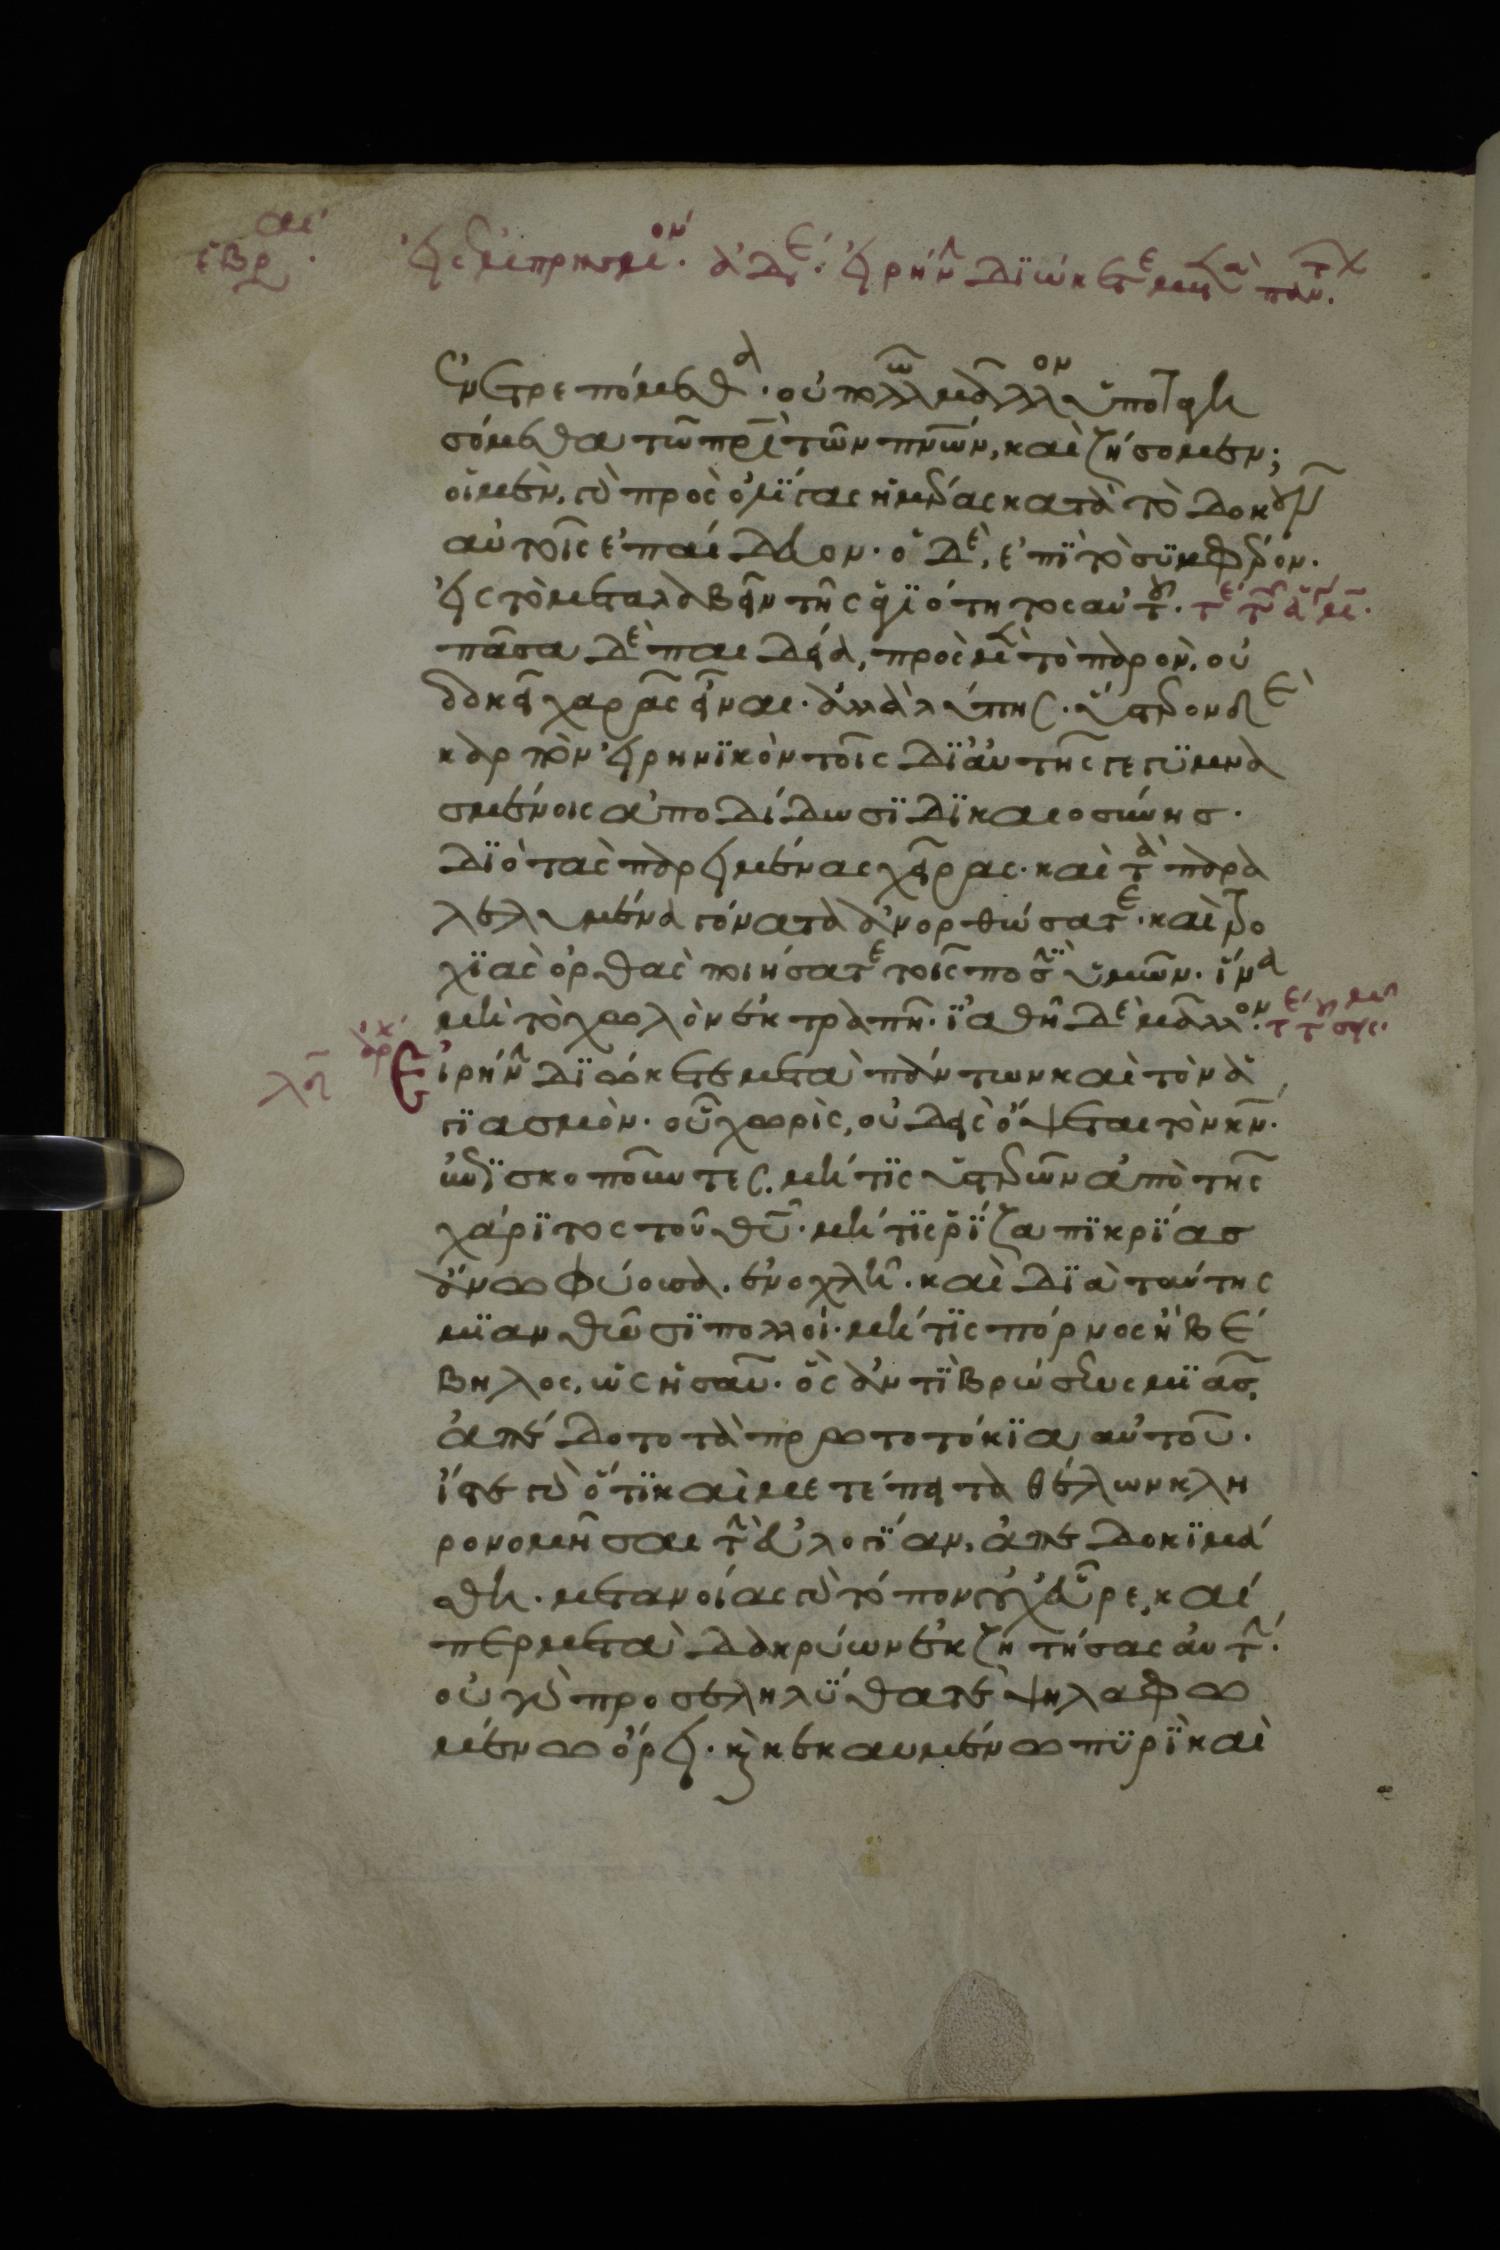 ἐντρεπόμεθα· οὐ πολλῶ μᾶλλον ὑποταγη
σόμεθα τῶ πρι τῶν πνων, καὶ ζήσομεν;
οἱ μὲν γὰρ πρὸς ὀλίγας ἡμέρας κατὰ τὸ δοκοῦν
αὐτοῖς ἐπαίδευον· ὁ δὲ, ἐπὶ τὸ συμφέρον·
εἰς τὸ μεταλαβεῖν τῆς ἁγιότητος αὐτοῦ·
πᾶσα δὲ παιδεία, πρὸς μὲν τὸ παρὸν, οὐ
δοκεῖ χαρᾶς εἶναι· ἀλλὰ λύπης· ὕστερον δὲ
καρπὸν εἰρηνικὸν τοῖς δι' αὐτῆς γεγυμνα
σμένοις ἀποδίδωσι δικαιοσύνης·
διὸ τὰς παρειμένας χεῖρας· καὶ τὰ παρα
λελυμένα γόνατα ἀνορθώσατε· καὶ τρο
χιὰς ὀρθὰς ποιήσατε τοῖς ποσὶν ὑμῶν· ἵνα
μὴ τὸ χωλὸν ἐκτραπῆ· ἰαθῆ δὲ μᾶλλον·
Εἰρήνην διώκετε μετὰ πάντων καὶ τὸν ἁ
γιασμὸν· οὗ χωρὶς, οὐδεὶς ὄψεται τὸν κν·
ἐπισκοποῦντες· μή τις ὑστερῶν ἀπὸ τῆς
χάριτος τοῦ θυ· μή τις ῥίζα πικρίας
ἄνω φύουσα, ἐνοχλῆ· καὶ διὰ ταύτης
μιανθῶσι πολλοί· μή τις πόρνος ἢ βέ
βηλος, ὡς ἡσαῦ· ὃς ἀντὶ βρώσεως μιᾶς,
ἀπέδοτο τὰ πρωτοτόκια αὐτοῦ·
ἴστε γὰρ ὅτι καὶ μετέπειτα θέλων κλη
ρονομῆσαι τὴν εὐλογίαν, ἀπεδοκιμά
σθη· μετανοίας γὰρ τόπον οὐχ εὗρε, καί
περ μετὰ δακρύων ἐκζητήσας αὐτήν·
οὐ γὰρ προσεληλύθατε ψηλαφω
μένω ὄρει· καὶ κεκαυμένω πυρὶ καὶ